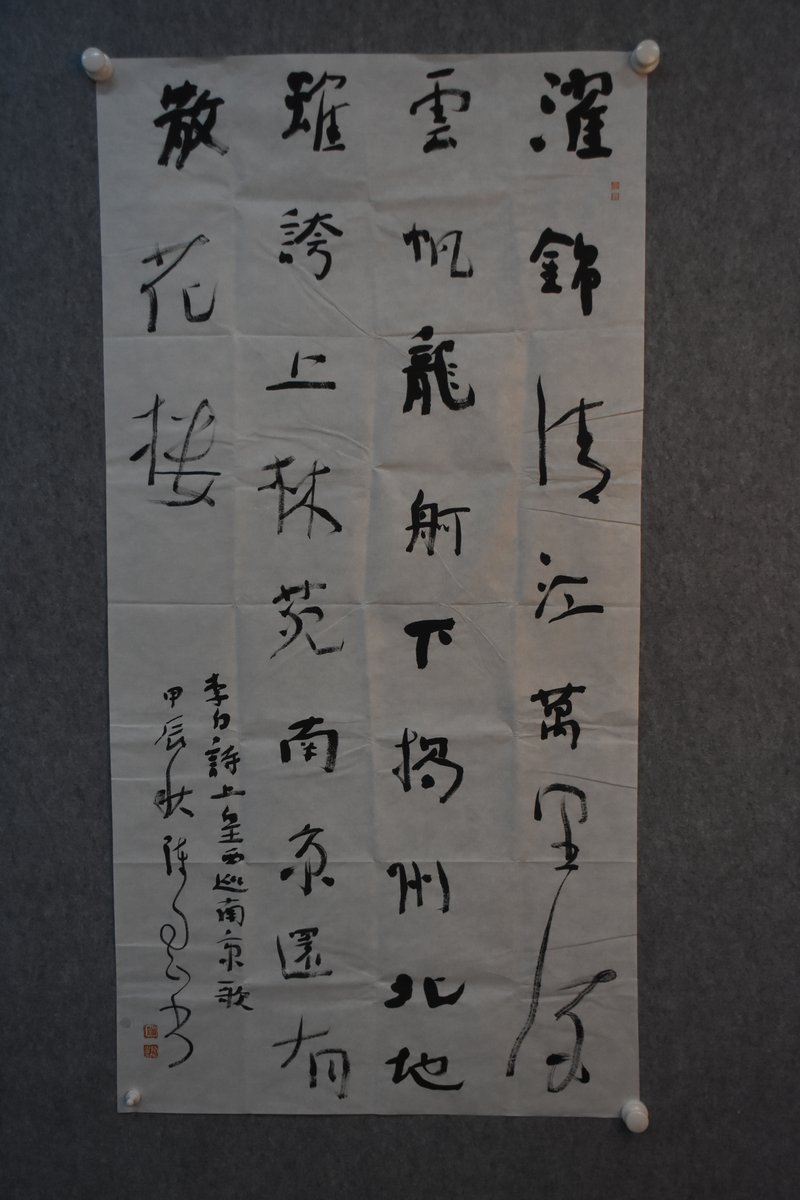 濯錦清江萬里流
雲帆龍舸下揚州北地
雖誇上林苑南京還有
散花樓
李白詩上皇西巡南京歌
甲辰秋陳書